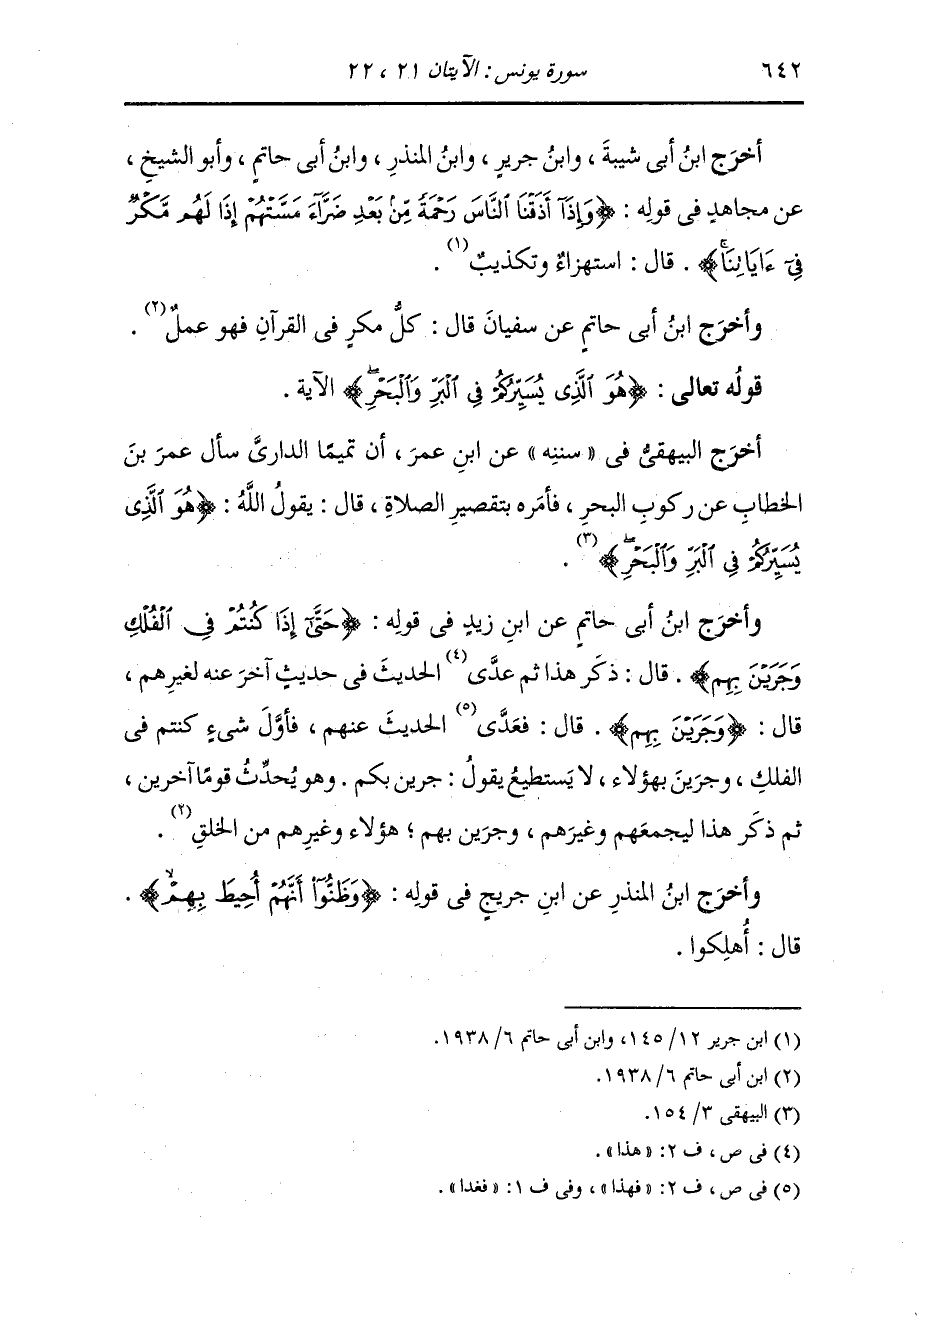 ٦٤٢ سورة يونس : الآيتان ٢١ ، ٢٢
أخرَج ابنُ أبى شيبةَ ، وابنُ جريرٍ ، وابنُ المنذرِ ، وابنُ أبى حاتمٍ ، وأبو الشيخِ ،
عن مجاهدٍ فى قولِه : ﴿وَإِذَآ أَذَقْنَا ٱلنَّاسَ رَحْمَةً مِّنۢ بَعْدِ ضَرَّآءَ مَسَّتْهُمْ إِذَا لَهُم مَّكْرٌ
فِىٓ ءَايَاتِنَاۚ﴾ . قال : استهزاءٌ وتكذيبٌ(١) .
وأخرَج ابنُ أبى حاتمٍ عن سفيانَ قال : كلُّ مكرٍ فى القرآنِ فهو عملٌ(٢) .
قولُه تعالى : ﴿هُوَ ٱلَّذِى يُسَيِّرُكُمْ فِى ٱلْبَرِّ وَٱلْبَحْرِۖ﴾ الآية .
أخرَج البيهقىُّ فى « سننِه » عن ابنِ عمرَ ، أن تميمًا الدارىَّ سأل عمرَ بنَ
الخطابِ عن ركوبِ البحرِ ، فأمَره بتقصيرِ الصلاةِ ، قال : يقولُ اللَّهُ : ﴿هُوَ ٱلَّذِى
يُسَيِّرُكُمْ فِى ٱلْبَرِّ وَٱلْبَحْرِۖ﴾(٣) .
وأخرَج ابنُ أبى حاتمٍ عن ابنِ زيدٍ فى قولِه : ﴿حَتَّىٰٓ إِذَا كُنتُمْ فِى ٱلْفُلْكِ
وَجَرَيْنَ بِهِم﴾ . قال : ذكَر هذا ثم عدَّى(٤) الحديثَ فى حديثٍ آخرَ عنه لغيرِهم ،
قال : ﴿وَجَرَيْنَ بِهِم﴾ . قال : فعَدَّى(٥) الحديثَ عنهم ، فأوَّلَ شىءٍ كنتم فى
الفلكِ ، وجرَينَ بهؤلاء ، لا يَستطيعُ يقولُ : جرين بكم . وهو يُحدِّثُ قومًا آخرين ،
ثم ذكَر هذا ليجمعَهم وغيرَهم ، وجرَين بهم ؛ هؤلاء وغيرِهم من الخلقِ(٢) .
وأخرَج ابنُ المنذرِ عن ابنِ جريجٍ فى قولِه : ﴿وَظَنُّوٓا۟ أَنَّهُمْ أُحِيطَ بِهِمْۙ﴾ .
قال : أُهلِكوا .
(١) ابن جرير ١٢/ ١٤٥، وابن أبى حاتم ٦/ ١٩٣٨.
(٢) ابن أبى حاتم ٦/ ١٩٣٨.
(٣) البيهقى ٣/ ١٥٤.
(٤) فى ص ، ف ٢: « هذا » .
(٥) فى ص ، ف ٢: « فهذا » ، وفى ف ١: « فغدا » .